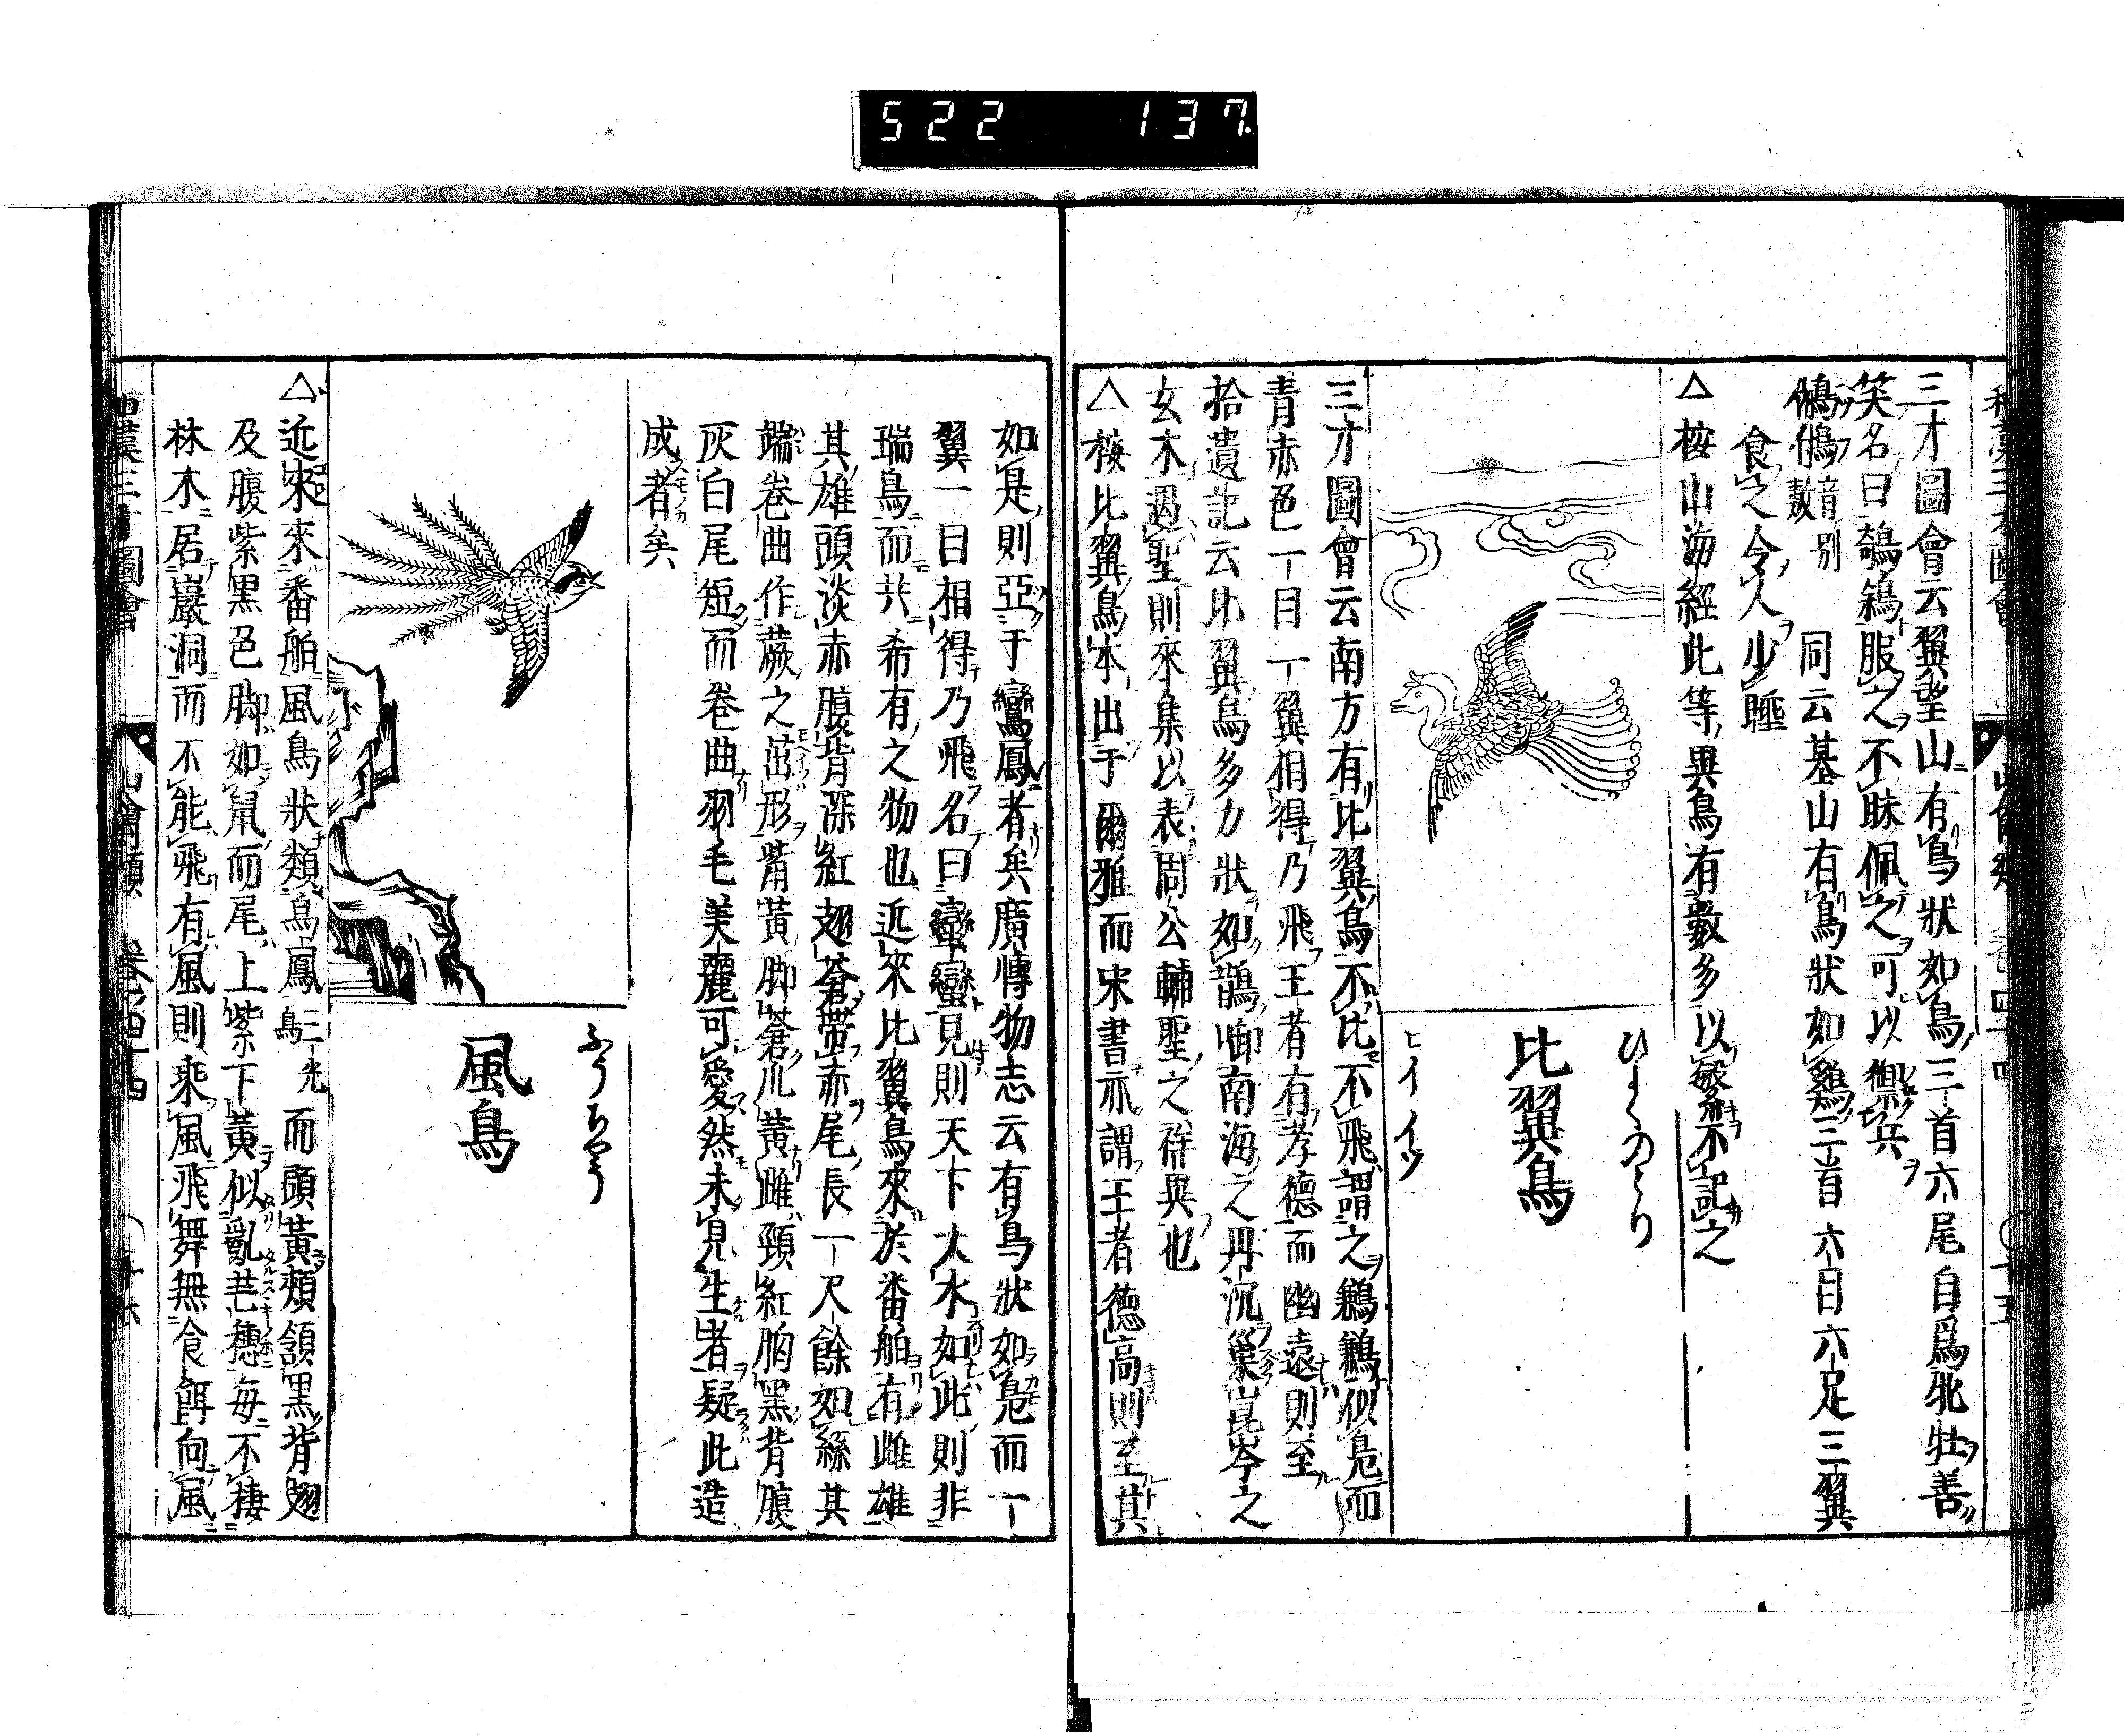 522 137.
三才圖會云翼望山有鳥狀如烏三首六尾自爲牝牡善
笑名曰鵸鵌服之不眯佩之可以禦兵
音別
同云基山有鳥狀如鷄三首六目六足三翼
食之令人少睡
△按山海經此等異鳥有數多以繁不記之
ひよくのとり
比翼鳥
ヒイイツ
三才圖會云南方有比翼鳥不比不飛謂之鶼鶼似鳬而
青赤色一目一翼相得乃飛王者有孝德而幽遠則至
拾遺記云比翼鳥多力狀如鵲啣南海之丹泥巢崑岑之
玄木遇聖則來集以表周公輔聖之祥異也
△按比翼鳥本出于爾雅而宋書亦謂王者德高則至其
如是則亞于鸞鳳者矣廣博物志云有鳥狀如鳬而一
翼一目相得乃飛名曰蠻蠻見則天下大水如此則非
瑞鳥而共希有之物也近來比翼鳥來於番舶有雌雄
其雄頭淡赤腹背深紅翅蒼帶赤尾長一尺餘如絲其
端卷曲作蕨之茁形觜黃脚蒼爪黃雌頸紅胸黑背腹
灰白尾短而卷曲羽毛美麗可愛然未見生者疑此造
成者矣
ふうちやう
風鳥
△近來來番舶風鳥狀類烏鳳三光鳥而頭黃頰頷黑背翅
及腹紫黑色脚如鼠而尾上紫下黃似亂芒穗每不棲
林木居巖洞而不能飛有風則乘風飛舞無食餌向風
和漢三才圖會 山禽類 卷四十四